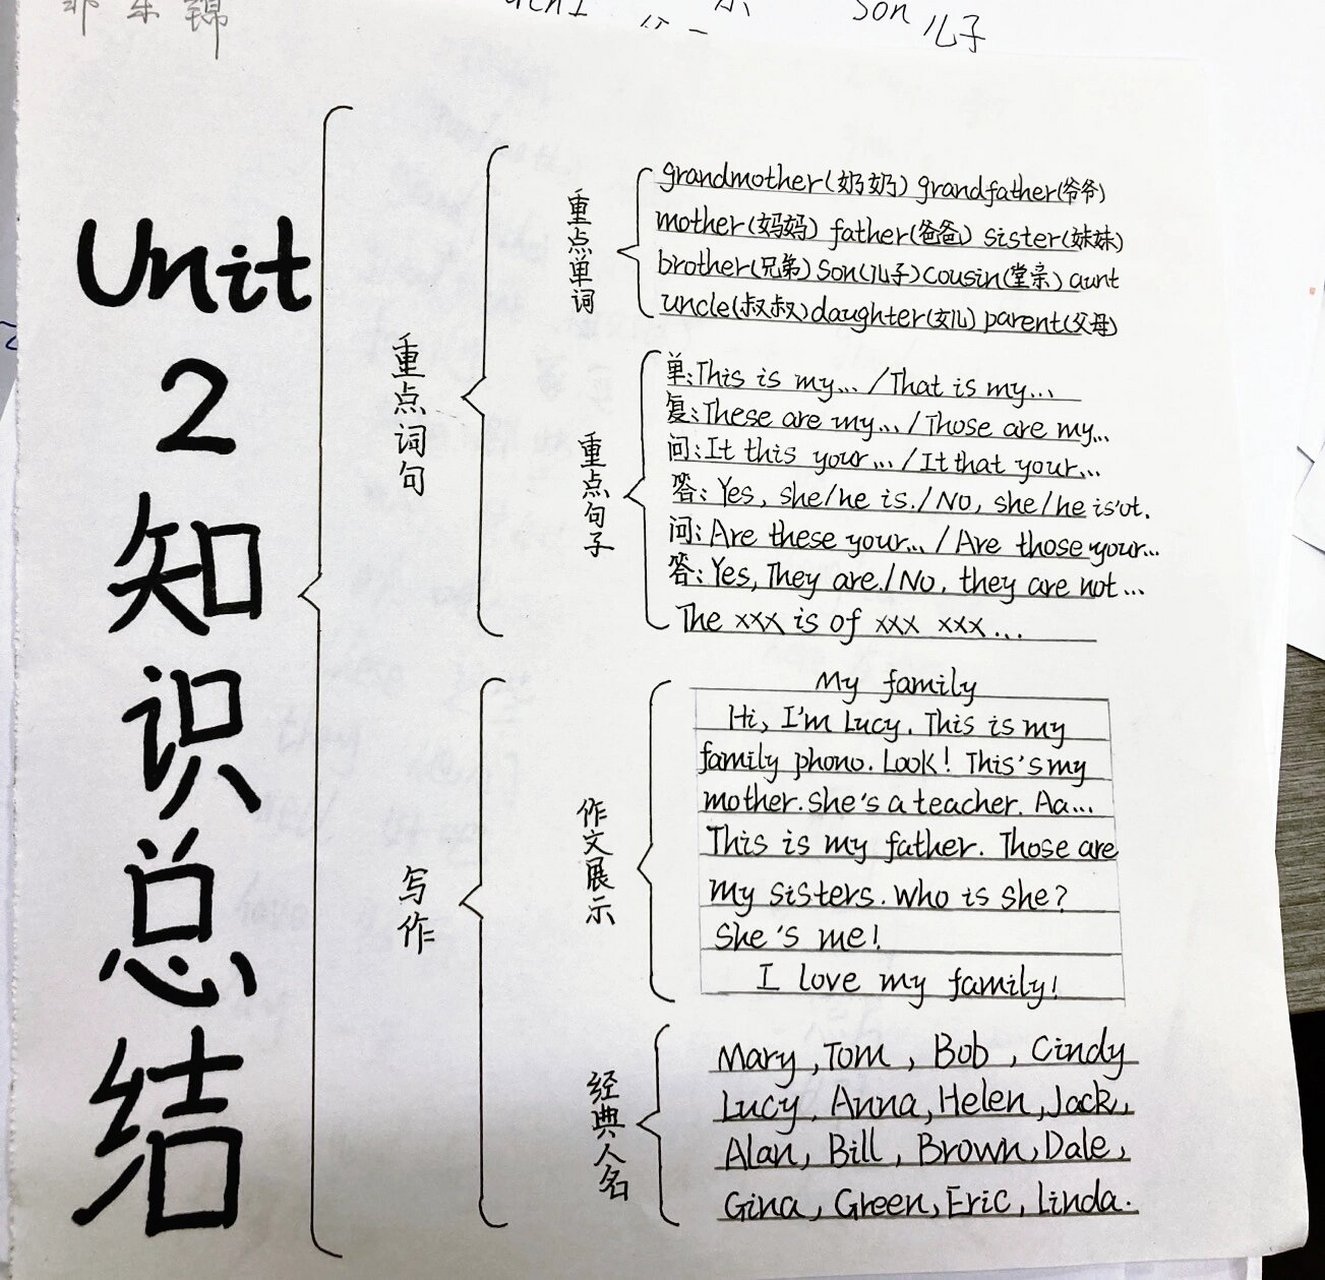 锦
Son 儿子
Unit
2
知
识
总
结
重点词句
重点单词
grandmother(奶奶) grandfather(爷爷)
mother(妈妈) father(爸爸) sister(妹妹)
brother(兄弟) Son(儿子) cousin(堂亲) aunt
uncle(叔叔) daughter(女儿) parent(父母)
重点句子
单: This is my... / That is my...
复: These are my... / Those are my...
问: It this your... / It that your...
答: Yes, she/he is. / No, she/he is'ot.
问: Are these your... / Are those your...
答: Yes, They are. / No, they are not...
The xxx is of xxx xxx...
写作
作文展示
My family
Hi, I'm Lucy. This is my
family phono. Look! This's my
mother. She's a teacher. Aa...
This is my father. Those are
my sisters. Who is she?
She's me!
I love my family!
经典人名
Mary, Tom, Bob, Cindy
Lucy, Anna, Helen, Jack,
Alan, Bill, Brown, Dale,
Gina, Green, Eric, Linda.